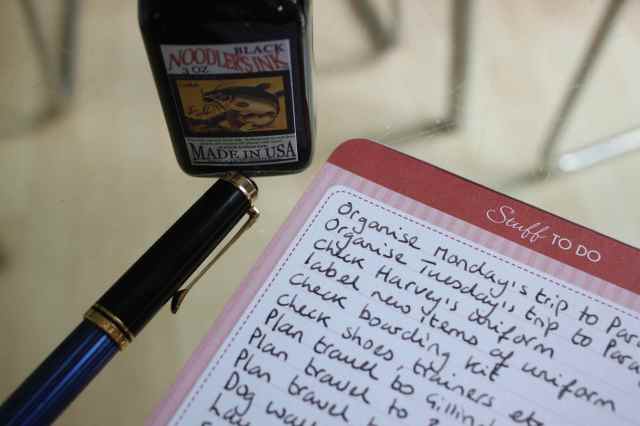 BLACK
NOODLER'S INK
3 OZ
MADE IN USA
Stuff TO DO
Organise Monday's trip to Par
Organise Tuesday's trip to Para
Check Harvey's uniform
label new items of uniform
check boarding kit
check shoes, trainers etc
Plan travel to Gilling
Plan travel to
Plan travel
Dog wal